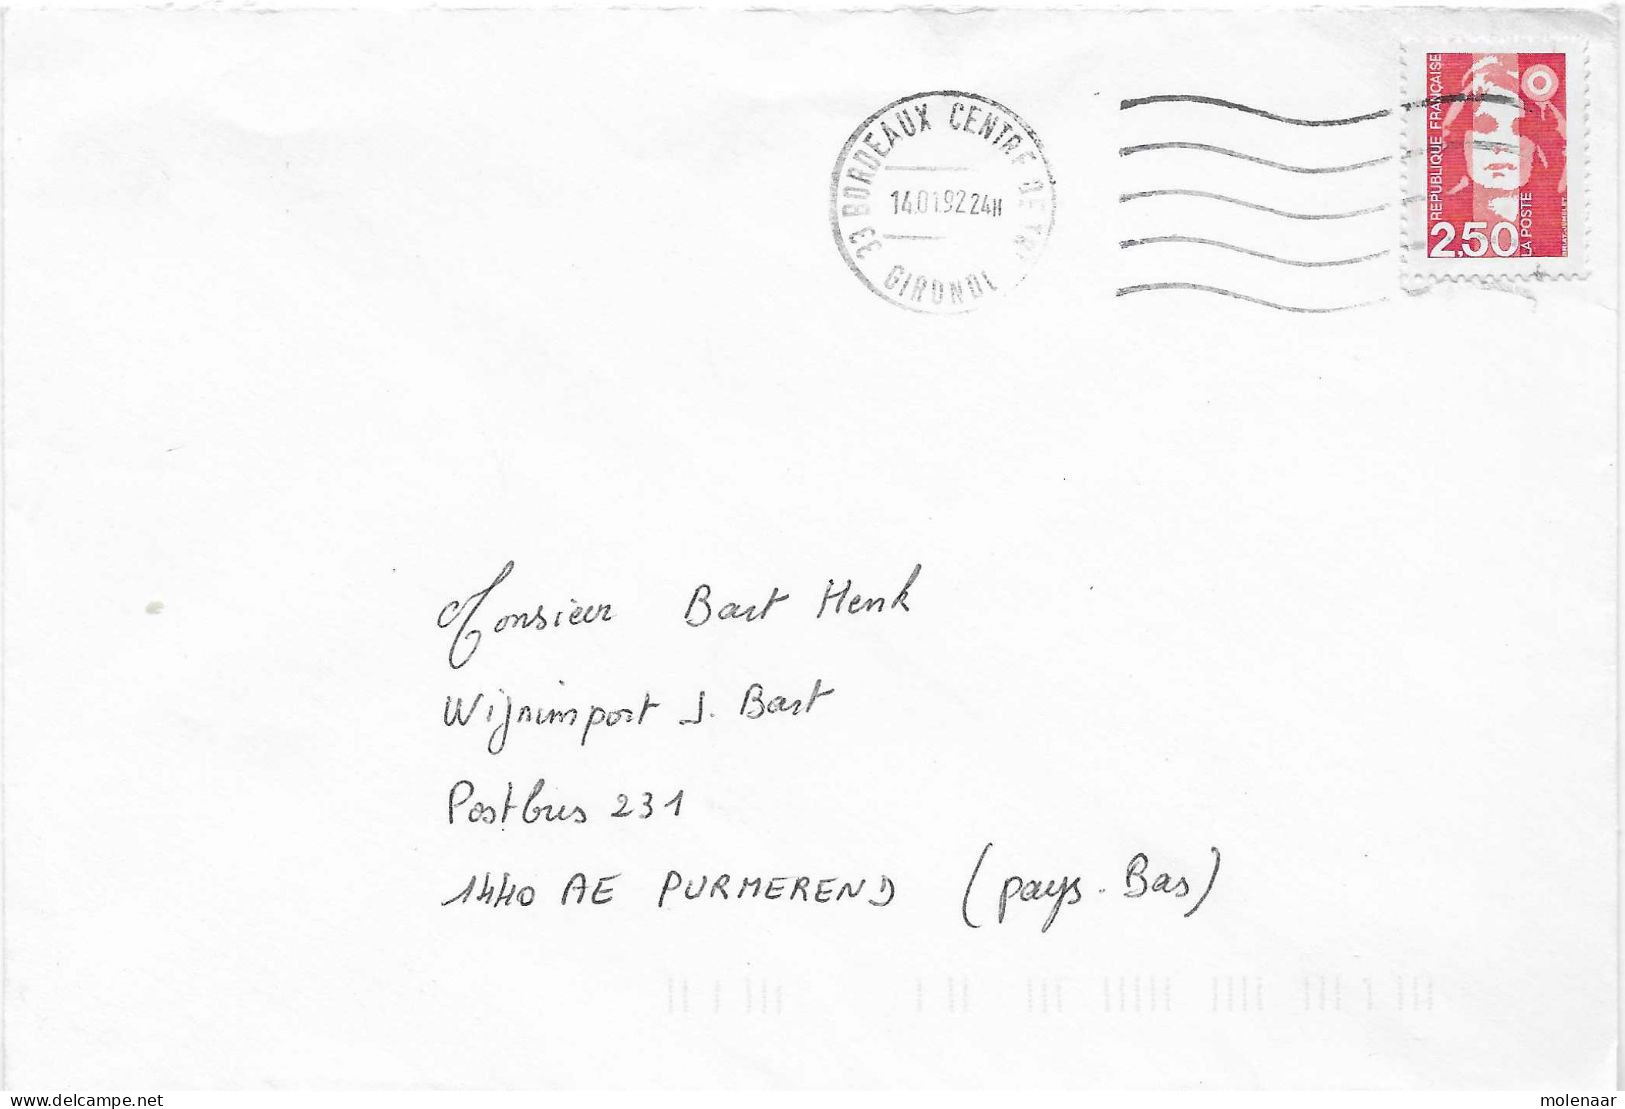 RÉPUBLIQUE FRANÇAISE
2,50
LA POSTE
33 BORDEAUX CENTRE DE TRI
14.01.92 24H
GIRONDE
Monsieur Bart Henk
Wijnimport J. Bart
Postbus 231
1440 AE PURMEREND (pays-Bas)
www.delcampe.net
molenaar